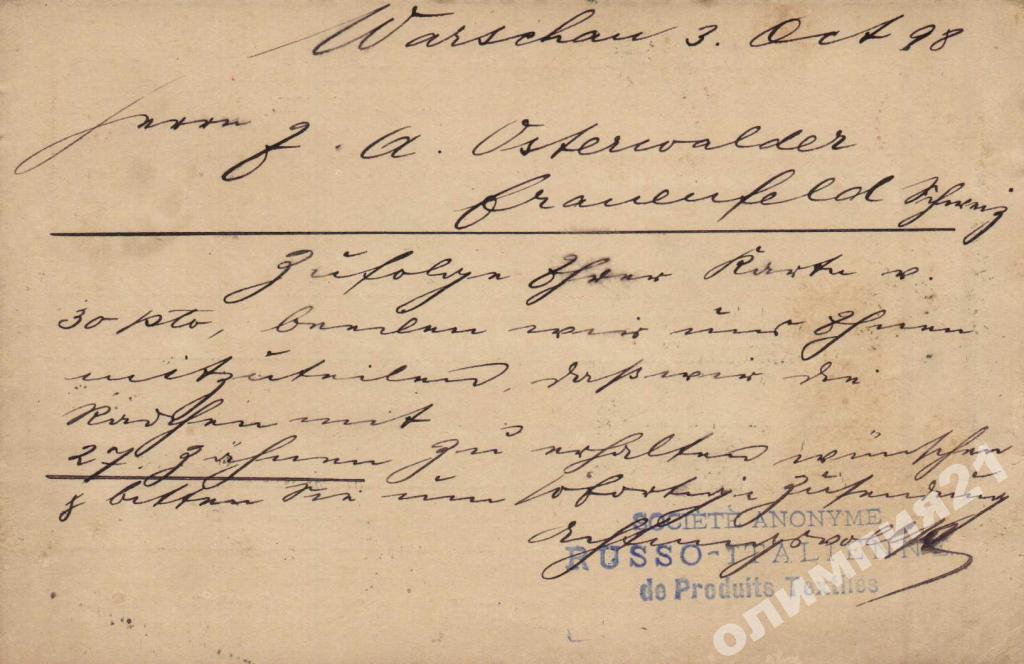 Warschau 3. Oct 98
Herrn J. A. Osterwalder
Frauenfeld Schweiz
Zufolge Ihrer Karte v.
30 pto, beeilen wir uns Ihnen
mitzuteilen, daß wir die
Rädchen mit
27. Zähnen zu erhalten wünschen
& bitten Sie um sofortige Zusendung
Achtungsvoll
SOCIÉTÉ ANONYME
RUSSO-ITALIENNE
de Produits Textiles
олимпия21